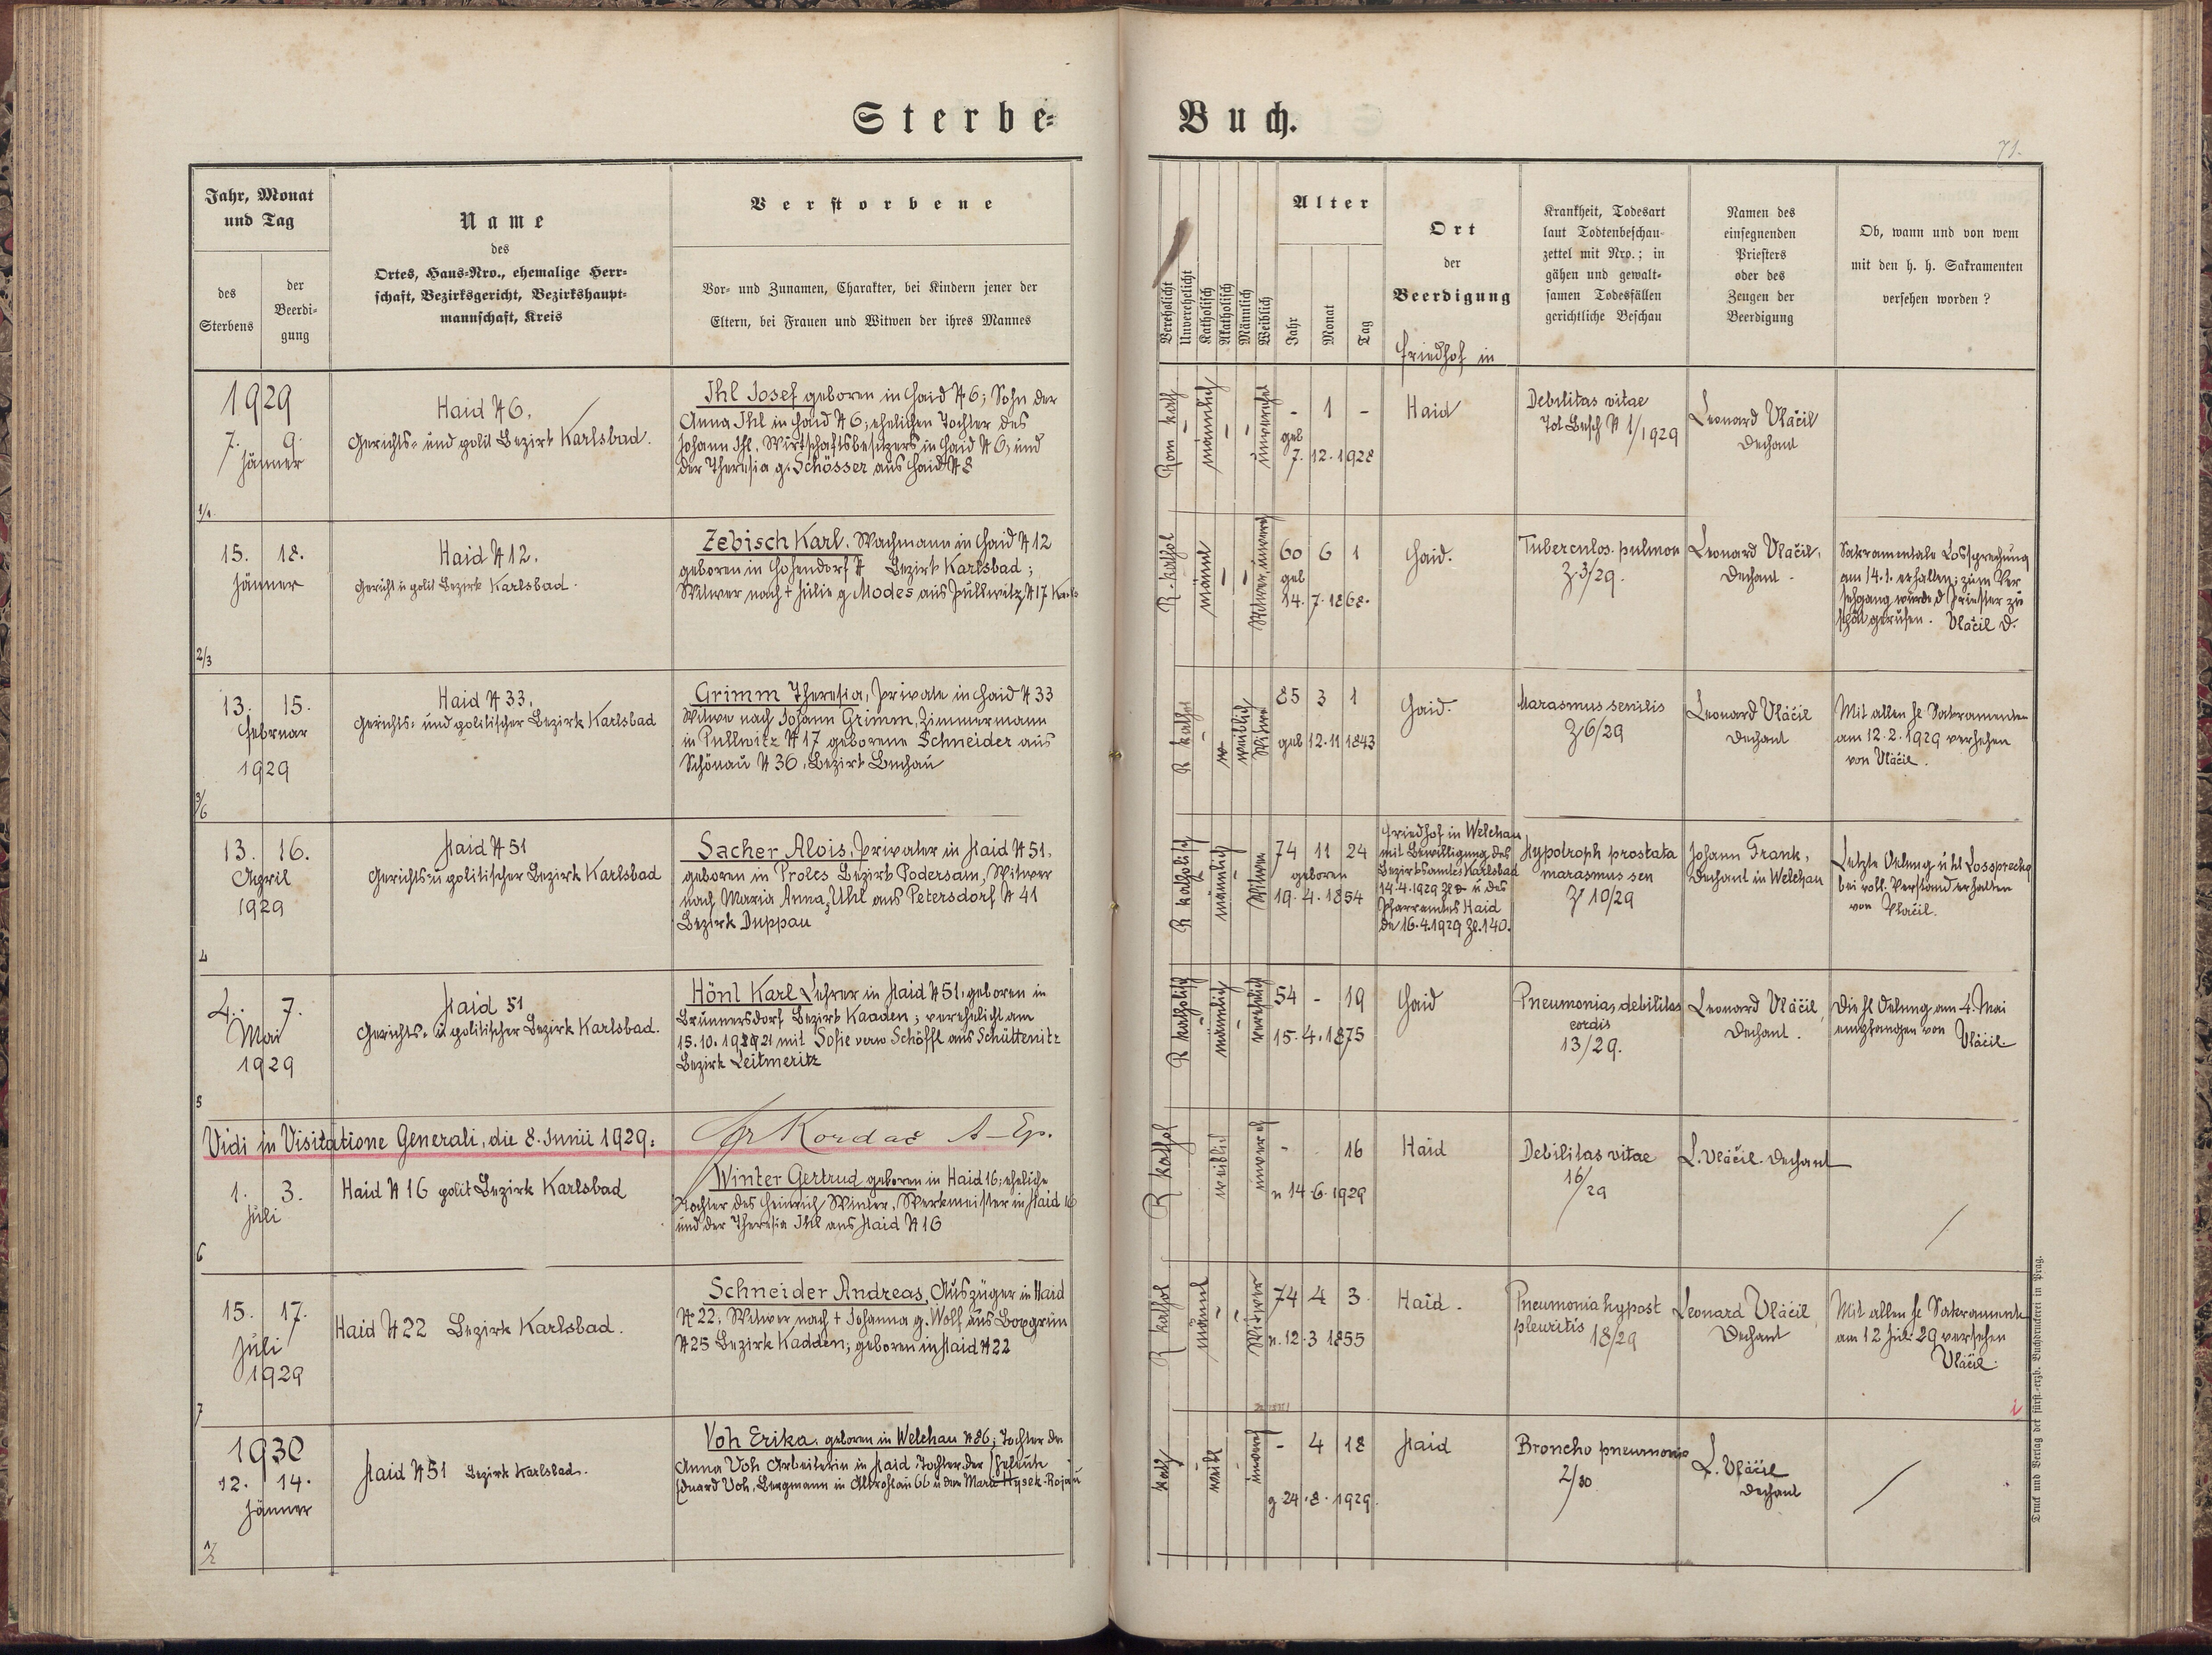 Sterbe-
Buch.
71.
Jahr, Monat
und Tag
des
Sterbens
der
Beerdi-
gung
Name
des
Ortes, Haus-Nro., ehemalige Herr-
schaft, Bezirksgericht, Bezirkshaupt-
mannschaft, Kreis
Verstorbene
Vor- und Zunamen, Charakter, bei Kindern jener der
Eltern, bei Frauen und Witwen der ihres Mannes
Verehelicht
Unverehelicht
Katholisch
Akatholisch
Männlich
Weiblich
Alter
Jahr
Monat
Tag
Ort
der
Beerdigung
Friedhof in
Krankheit, Todesart
laut Todtenbeschau-
zettel mit Nro.; in
gähen und gewalt-
samen Todesfällen
gerichtliche Beschau
Namen des
einsegnenden
Priesters
oder des
Zeugen der
Beerdigung
Ob, wann und von wem
mit den h. h. Sakramenten
versehen worden?
1929
7. 9.
Jänner
1/1
Haid N 6.
Gerichts- und polit Bezirk Karlsbad.
Ihl Josef geboren in Haid N 6; Sohn der
Anna Ihl in Haid N 6; ehelichen Tochter des
Johann Ihl, Wirtschaftsbesitzers in Haid N 6, und
der Theresia g. Schösser aus Haid N 8
Rom kath
männlich
unverehel
- 1 -
geb
7. 12. 1928
Haid
Debilitas vitae
Tot Besch N 1/1929
Leonard Vláčil
Dechant
15. 18.
Jänner
2/3
Haid N 12.
Gericht u polit Bezirk Karlsbad.
Zebisch Karl. Wachmann in Haid N 12
geboren in Hohendorf N Bezirk Karlsbad;
Witwer nach + Julie g Modes aus Pullwitz N 17
R. kathol
männl
Witwer
60 6 1
geb
14. 7. 1868.
Haid.
Tuberculos. pulmon
Z 3/29.
Leonard Vláčil,
Dechant.
Sakramentale Lossprechung
am 14. 1. erhalten; zum Ver
sehgang wurde d Priester zu
spät gerufen. Vláčil D.
13. 15.
Februar
1929
3/6
Haid N 33,
Gerichts- und politischer Bezirk Karlsbad
Grimm Theresia, Private in Haid N 33
Witwe nach Johann Grimm, Zimmermann
in Pullwitz N 17 geborene Schneider aus
Schönau N 36, Bezirk Buchau
R kathol
weiblich
Witwe
85 3 1
geb 12. 11 1843
Haid.
Marasmus senilis
Z 6/29
Leonard Vláčil
Dechant
Mit allen hl Sakramenten
am 12. 2. 1929 versehen
von Vláčil.
13. 16.
April
1929
4
Haid N 51
Gerichts- u politischer Bezirk Karlsbad
Sacher Alois, Privater in Haid N 51,
geboren in Proles Bezirk Podersam, Witwer
nach Maria Anna, Uhl aus Petersdorf N 41
Bezirk Duppau
R katholisch
männlich
Witwer
74 11 24
geboren
19. 4. 1854
Friedhof in Welchau
mit Bewilligung des
Bezirksamtes Karlsbad
14.4.1929 u des
Pfarramtes Haid
de 16.4.1929 Zl. 140.
Hypotroph prostata
marasmus sen
Z 10/29
Johann Frank,
Dechant in Welchau
Letzte Oelung u hl Lossprechg
bei voll. Verstand erhalten
von Vláčil.
4. 7.
Mai
1929
5
Haid 51
Gerichts- u politischer Bezirk Karlsbad.
Hönl Karl Lehrer in Haid N 51, geboren in
Brunnersdorf Bezirk Kaaden; verehelicht am
15. 10. 1921 mit Sofie verw Schöffl aus Schüttenitz
Bezirk Leitmeritz
R katholisch
männlich
verehelicht
54 - 19
15. 4. 1875
Haid
Pneumonia, debilitas
cordis
13/29.
Leonard Vláčil,
Dechant.
Die hl Oelung am 4. Mai
empfangen von Vláčil.
Vidi in Visitatione Generali, die 8. Junii 1929: Fr Kordač A-Ep.
1. 3.
Juli
6
Haid N 16 polit Bezirk Karlsbad
Winter Gertrud geboren in Haid 16; eheliche
Tochter des Heinrich Winter, Werkmeister in Haid 16
und der Theresia Ihl aus Haid N 16
R kathol
weiblich
unvereh
- - 16
n 14 6. 1929
Haid
Debilitas vitae
16/29
L. Vláčil. Dechant
15. 17.
Juli
1929
7
Haid N 22 Bezirk Karlsbad.
Schneider Andreas, Auszüger in Haid
N 22, Witwer nach + Johanna g. Wolf aus Boxgrün
N 25 Bezirk Kadden; geboren in Haid N 22
R kathol
männl
Witwer
74 4 3
n. 12. 3 1855
Haid.
Pneumonia hypost
pleuritis 18/29
Leonard Vláčil,
Dechant
Mit allen hl Sakramente
am 12 Juli 29 versehen
Vláčil.
1930
12. 14.
Jänner
Haid N 51 Bezirk Karlsbad.
Voh Erika. geboren in Welchau N 86; Tochter der
Anna Voh Arbeiterin in Haid, Tochter der Eheleute
Eduard Voh, Bergmann in Altrohlau 66 u der Marie Hysek-
kath
weibl
unvereh
- 4 18
g 24. 8. 1929.
Haid
Broncho pneumonie
2/30.
L. Vláčil
Dechant
Druck und Verlag der fürst.-erzb. Buchdruckerei in Prag.